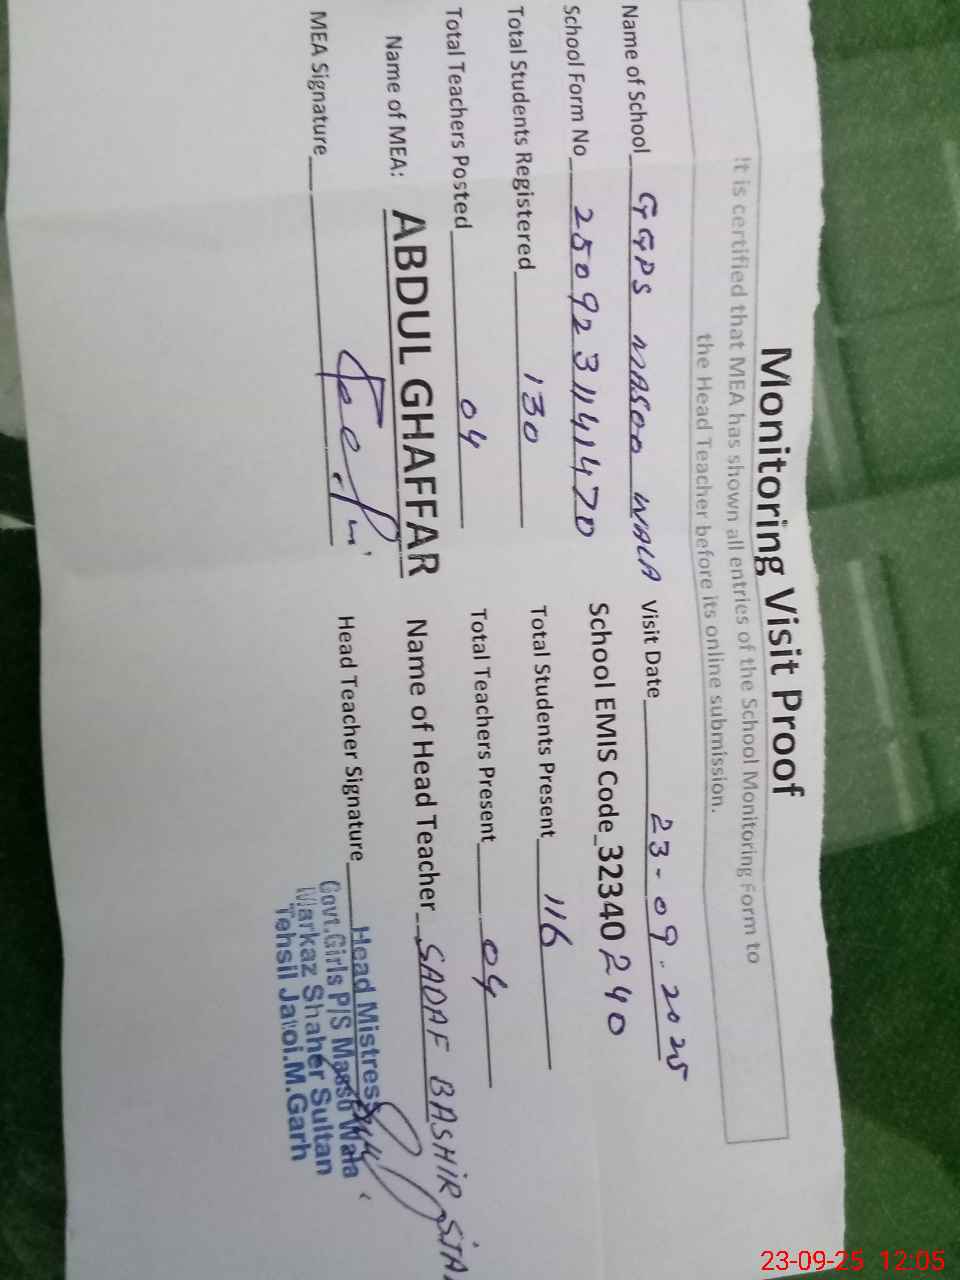 Monitoring Visit Proof
It is certified that MEA has shown all entries of the School Monitoring Form to
the Head Teacher before its online submission.
Name of School GGPS MASOO WALA Visit Date 23-09-2025
School Form No 2509231141470 School EMIS Code 32340240
Total Students Registered 130 Total Students Present 116
Total Teachers Posted 04 Total Teachers Present 04
Name of MEA: ABDUL GHAFFAR Name of Head Teacher SADAF BASHIR
MEA Signature Head Teacher Signature
Head Mistress
Govt.Girls P/S Masso Wala
Markaz Shaher Sultan
Tehsil Jatoi.M.Garh
23-09-25 12:05